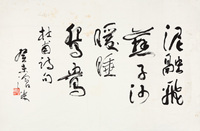 泥融飛
燕子沙
暖睡
鴛鴦
杜甫詩句
癸未